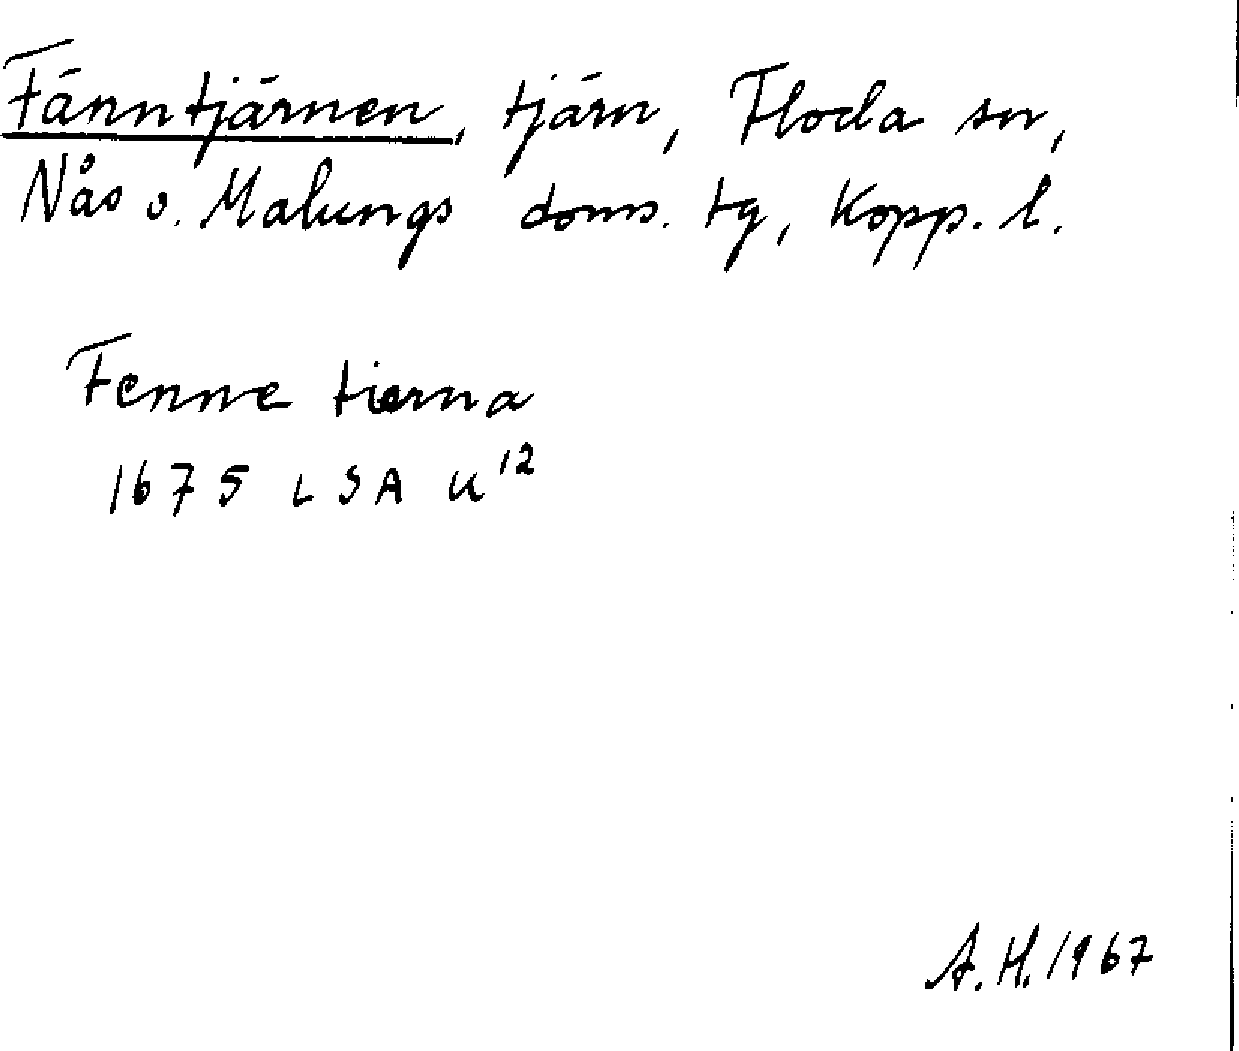 Fänntjärnen, tjärn, Floda sn,
Nås o. Malungs doms. tg, Kopp. l.
Fenne tierna
1675 LSA U¹²
A.H. 1967